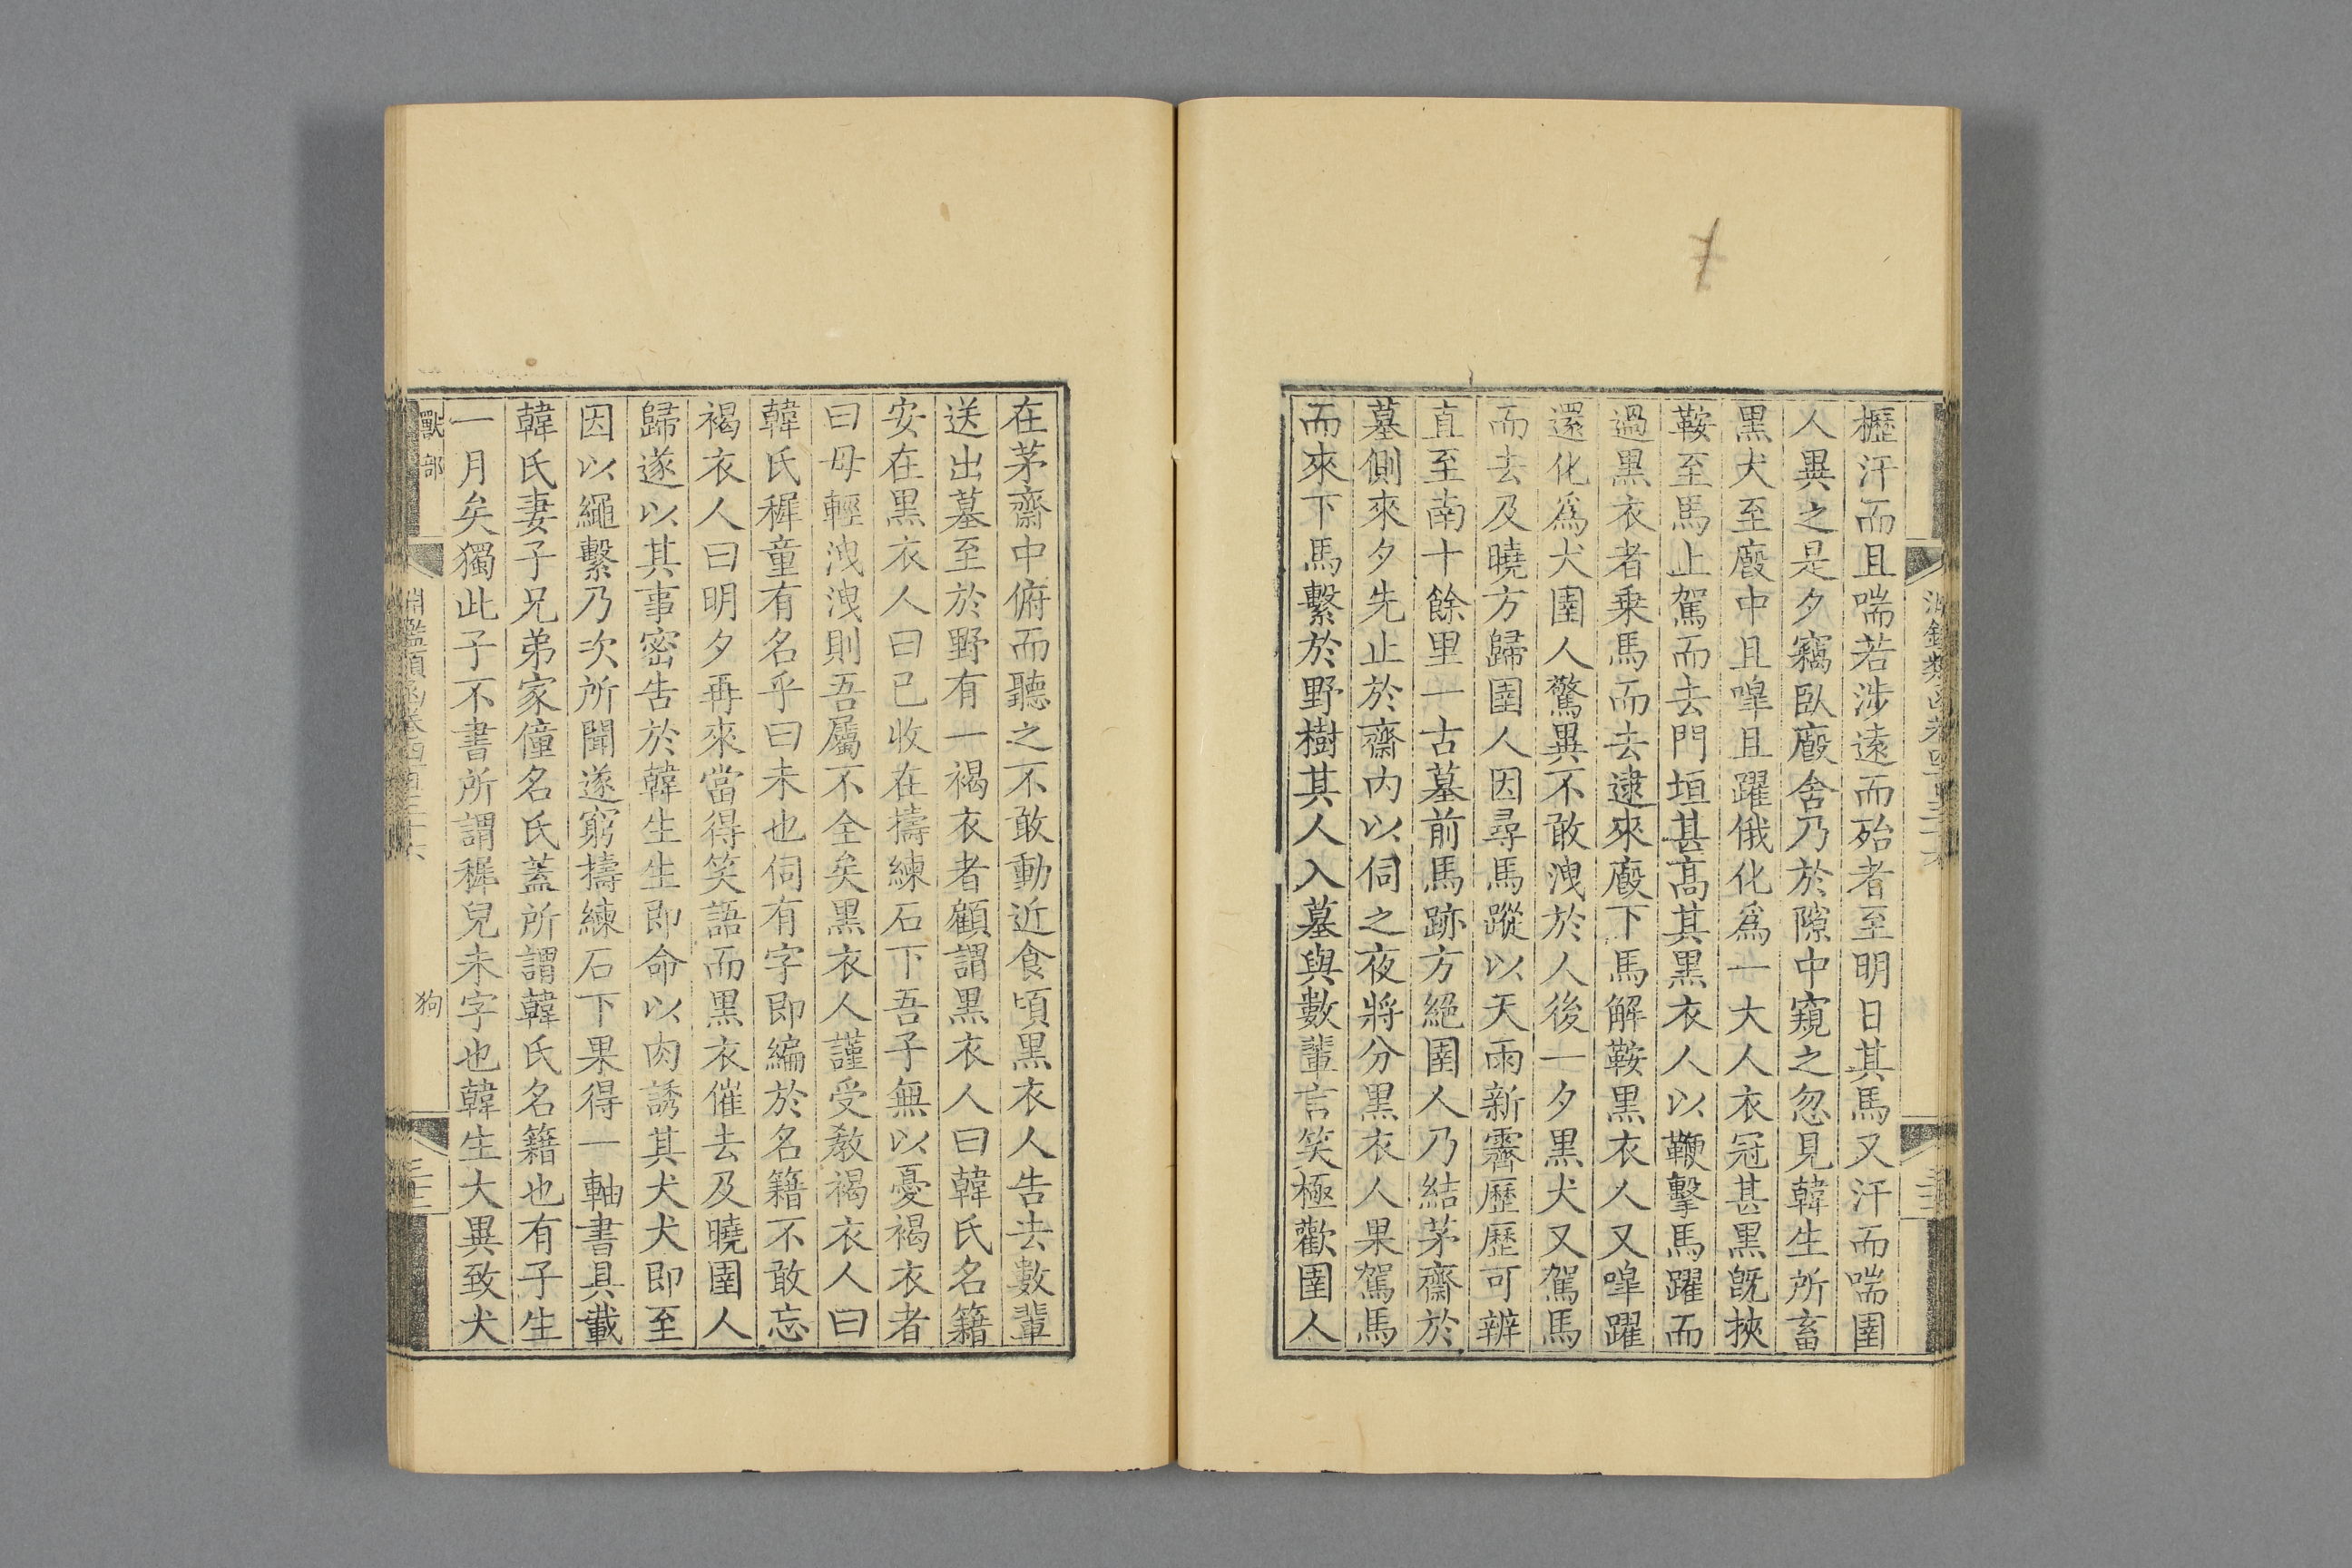 櫪汗而且喘若涉遠而殆者至明日其馬又汗而喘圉
人異之是夕竊臥廏舍乃於隙中窺之忽見韓生所畜
黑犬至廏中且嘷且躍俄化爲一大人衣冠甚黑旣挾
鞍至馬上駕而去門垣甚高其黑衣人以鞭擊馬躍而
過黑衣者乘馬而去逮來廏下馬解鞍黑衣人又嘷躍
還化爲犬圉人驚異不敢洩於人後一夕黑犬又駕馬
而去及曉方歸圉人因尋馬蹤以天雨新霽歷歷可辨
直至南十餘里一古墓前馬跡方絕圉人乃結茅齋於
墓側來夕先止於齋內以伺之夜將分黑衣人果駕馬
而來下馬繫於野樹其人入墓與數輩言笑極歡圉人
在茅齋中俯而聽之不敢動近食頃黑衣人告去數輩
送出墓至於野有一褐衣者顧謂黑衣人曰韓氏名籍
安在黑衣人曰已收在擣練石下吾子無以憂褐衣者
曰毋輕洩洩則吾屬不全矣黑衣人謹受教褐衣人曰
韓氏穉童有名乎曰未也伺有字即編於名籍不敢忘
褐衣人曰明夕再來當得笑語而黑衣催去及曉圉人
歸遂以其事密告於韓生生即命以肉誘其犬犬即至
因以繩繫乃次所聞遂窮擣練石下果得一軸書具載
韓氏妻子兄弟家僮名氏蓋所謂韓氏名籍也有子生
一月矣獨此子不書所謂穉兒未字也韓生大異致犬
獸部
淵鑑類函卷四百三十六
狗